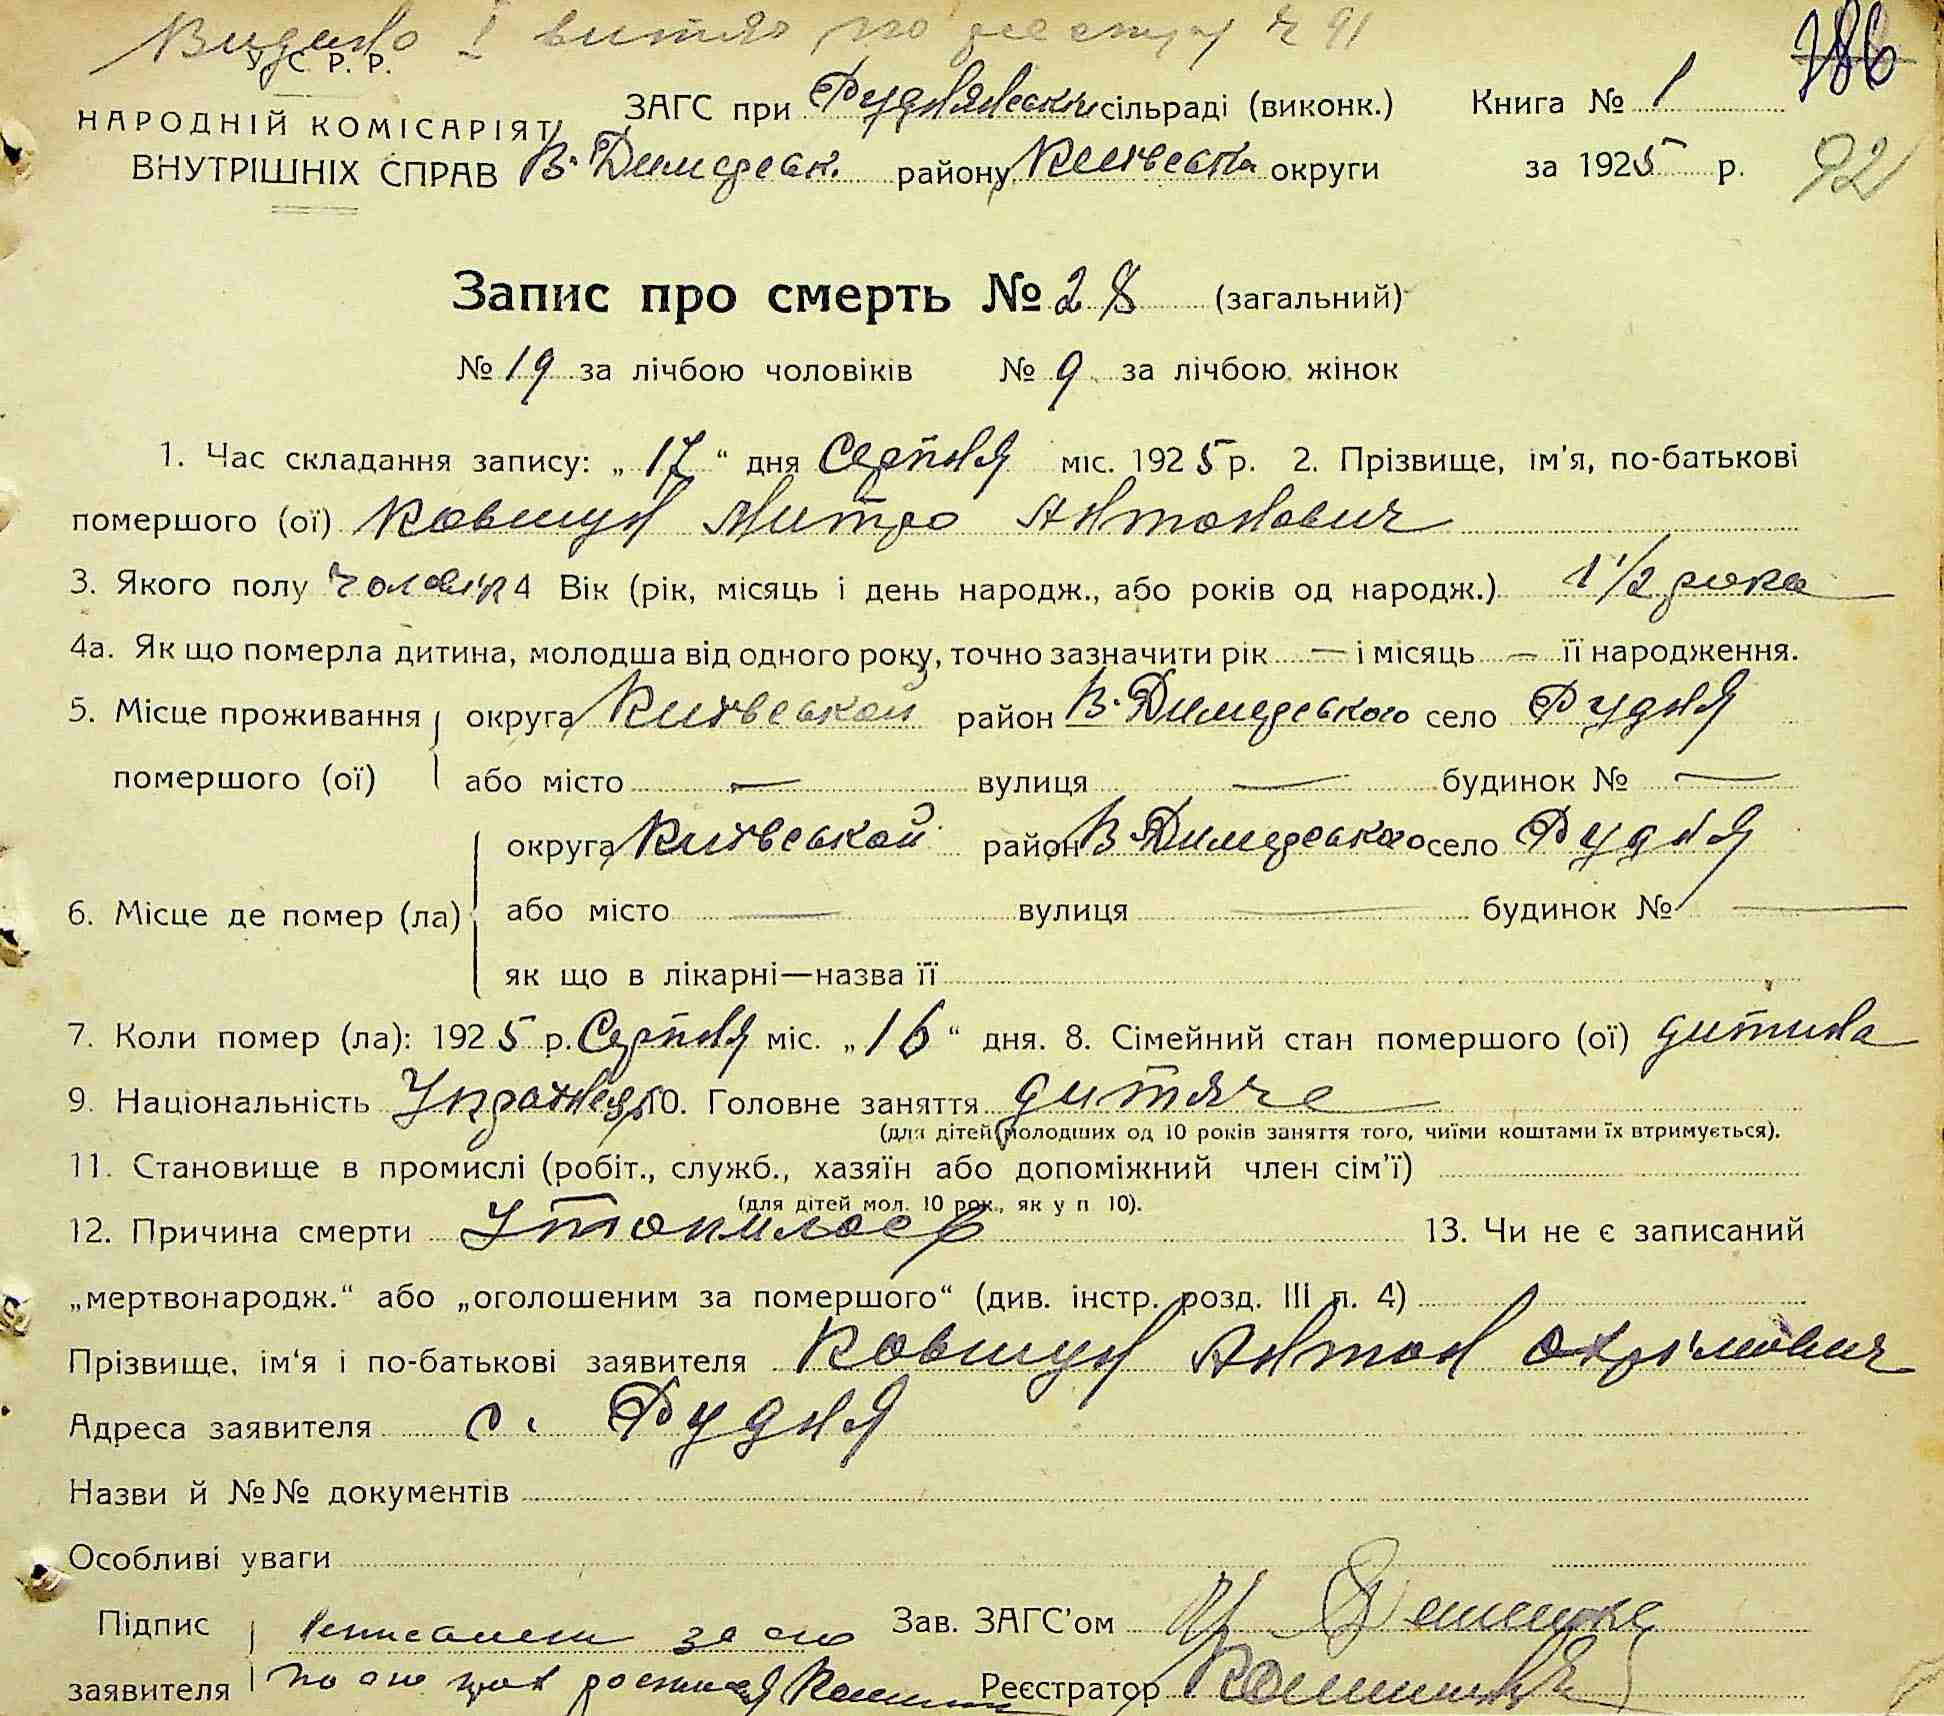 Видано I витяг по реєстру № 91
У. С. Р. Р.
186
НАРОДНІЙ КОМІСАРІЯТ ЗАГС при Руднянськи сільраді (виконк.) Книга № 1
ВНУТРІШНІХ СПРАВ В. Димерськ. району Київська округи за 1925 р. 92
Запис про смерть № 28 (загальний)
№ 19 за лічбою чоловіків № 9 за лічбою жінок
1. Час складання запису: „17“ дня Серпня міс. 1925 р. 2. Прізвище, ім'я, по-батькові
помершого (ої) Ковшун Митро Антонович
3. Якого полу чоловік 4 Вік (рік, місяць і день народж., або років од народж.) 1 1/2 рока
4а. Як що померла дитина, молодша від одного року, точно зазначити рік — і місяць — її народження.
5. Місце проживання округа Київськой район В. Димерського село Рудня
помершого (ої) або місто — вулиця — будинок № —
округа Київськой район В. Димерського село Рудня
6. Місце де помер (ла) або місто — вулиця — будинок № —
як що в лікарні—назва її
7. Коли помер (ла): 1925 р. Серпня міс. „16“ дня. 8. Сімейний стан помершого (ої) дитина
9. Національність Українець 10. Головне заняття дитяче
(для дітей молодших од 10 років заняття того, чиїми коштами їх втримується).
11. Становище в промислі (робіт., служб., хазяїн або допоміжний член сім'ї)
(для дітей мол. 10 рок., як у п. 10).
12. Причина смерти Утопилося 13. Чи не є записаний
„мертвонародж.“ або „оголошеним за помершого“ (див. інстр. розд. III п. 4)
Прізвище, ім'я і по-батькові заявителя Ковшун Антон Охрімович
Адреса заявителя с. Рудня
Назви й №№ документів
Особливі уваги
Підпис за его Зав. ЗАГС'ом
заявителя по его Реєстратор